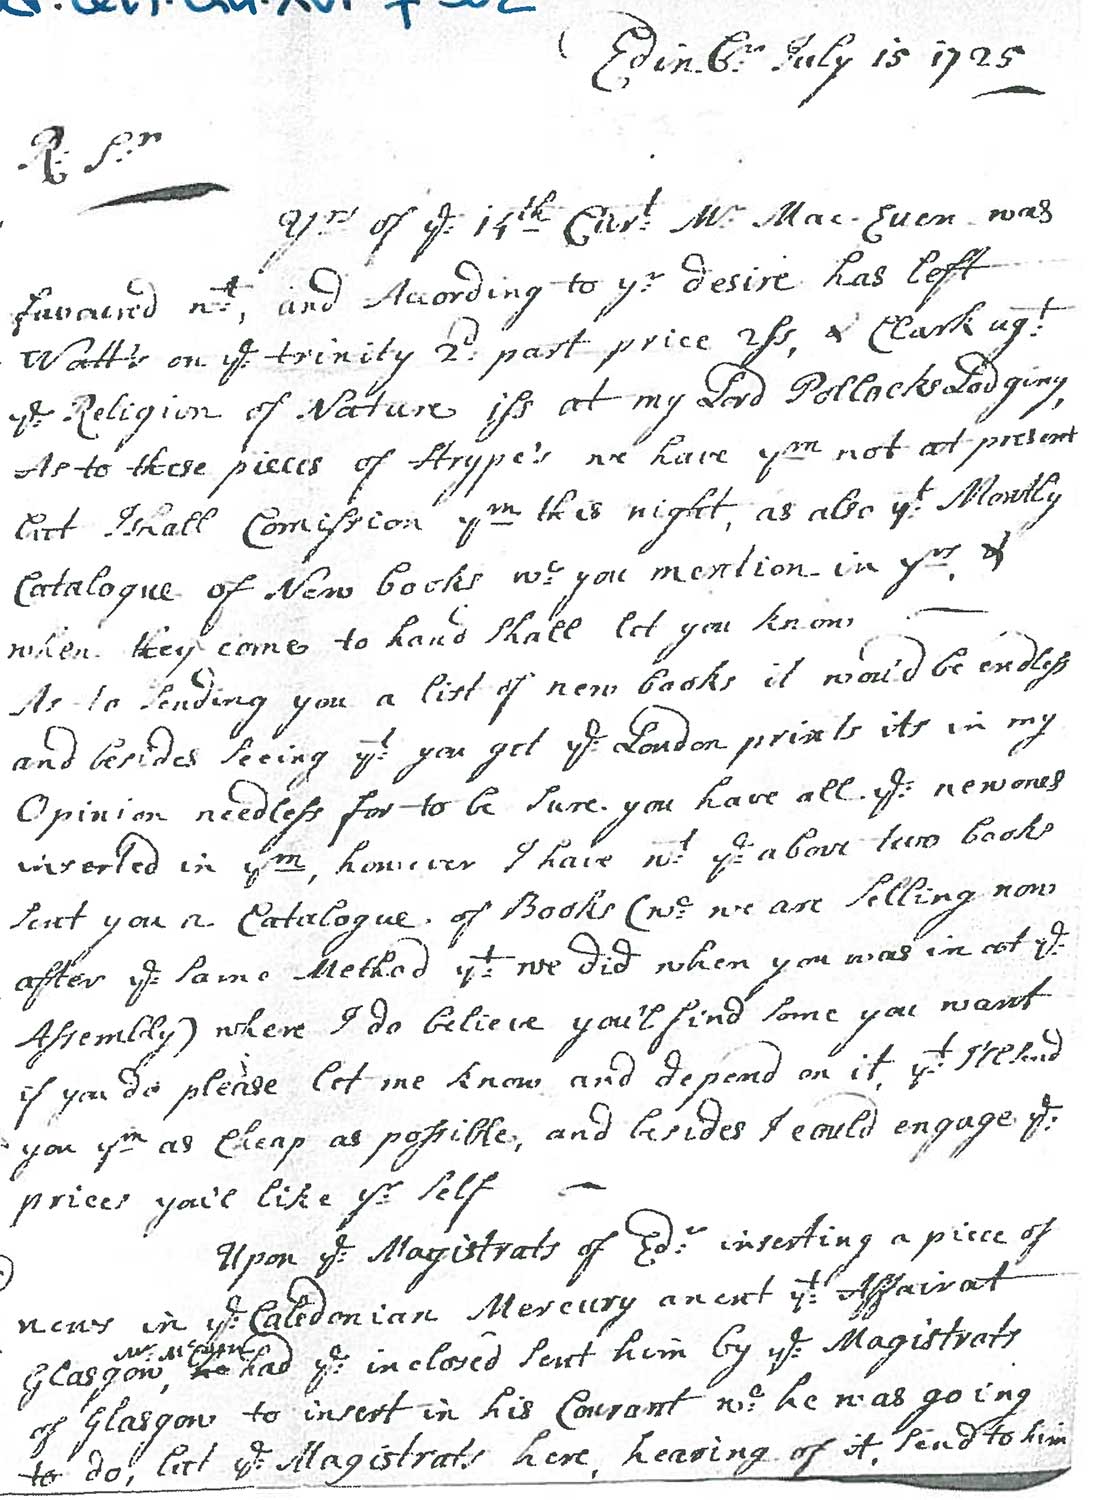 Edinbr July 15 1725
R: Sr
Yrs of ye 14th Curt Mr Mac-Euen was
favoured wt, and According to yr desire has left
Watt's on ye trinity 2d part price 2ss, & Clark agt
ye Religion of Nature 1ss at my Lord Pollocks Lodging,
As to these pieces of Strype's we have ym not at present
but I shall Comission ym this night, as also yt Montly
Catalogue of New books wc you mention in yrs, &
when they come to hand shall let you know
As to sending you a list of new books it wou'd be endless
and besides seeing yt you get ye London prints its in my
Opinion needless for to be sure you have all ye new ones
inserted in ym, however I have wt ye above two books
sent you a Catalogue of Books (wc we are selling now
after ye same Method yt we did when you was in at ye
Assembly) where I do believe you'l find some you want
if you do please let me know and depend on it, yt I'll send
you ym as Cheap as possible, and besides I could engage ye
prices you'l like yr self
Upon ye Magistrats of Edr inserting a piece of
news in ye Caledonian Mercury anent yt Affair at
Mr McEuen
Glasgow, he had ye inclosed sent him by ye Magistrats
of Glasgow to insert in his Courant wc he was going
to do, but ye Magistrats here, hearing of it, send to him